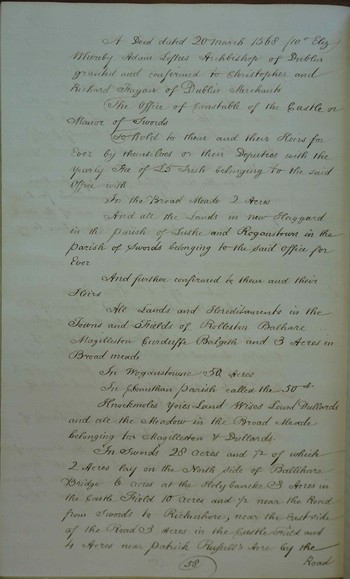 A Deed dated 20 March 1568 10th Eliz
Whereby Adam Loftus Archbishop of Dublin
granted and confirmed to Christopher and
Richard Fagan of Dublin Merchants
The Office of Constable of the Castle or
Manor of Swords
To hold to them and their Heirs for
Ever by themselves or their Deputies with the
yearly Fee of £5 Irish belonging to the said
Office with
In the Broad Meade 2 Acres
And all the Lands in new Haggard
in the parish of Luske and Roganstown in the
parish of Swords belonging to the said Office for
Ever
And further confirmed to them and their
Heirs
All Lands and Hereditaments in the
Towns and Fields of Rolleston
Magilleston and 3 Acres in
Broad meade
In 50 Acres
In parish called the 50
Land Wises Land Dullards
and all the Meadow in the Broad Meade
belonging to Magilleston & Dullards
In Swords 28 acres and ½ of which
2 Acres lay on the North side of
Bridge 6 acres at the Holy 3 Acres in
the Castle Field 10 acres and ½ near the Road
from Swords to near the East side
of the Road 3 Acres in the Castle Field and
4 Acres near Patrick Russell's Acre by the
58
Road